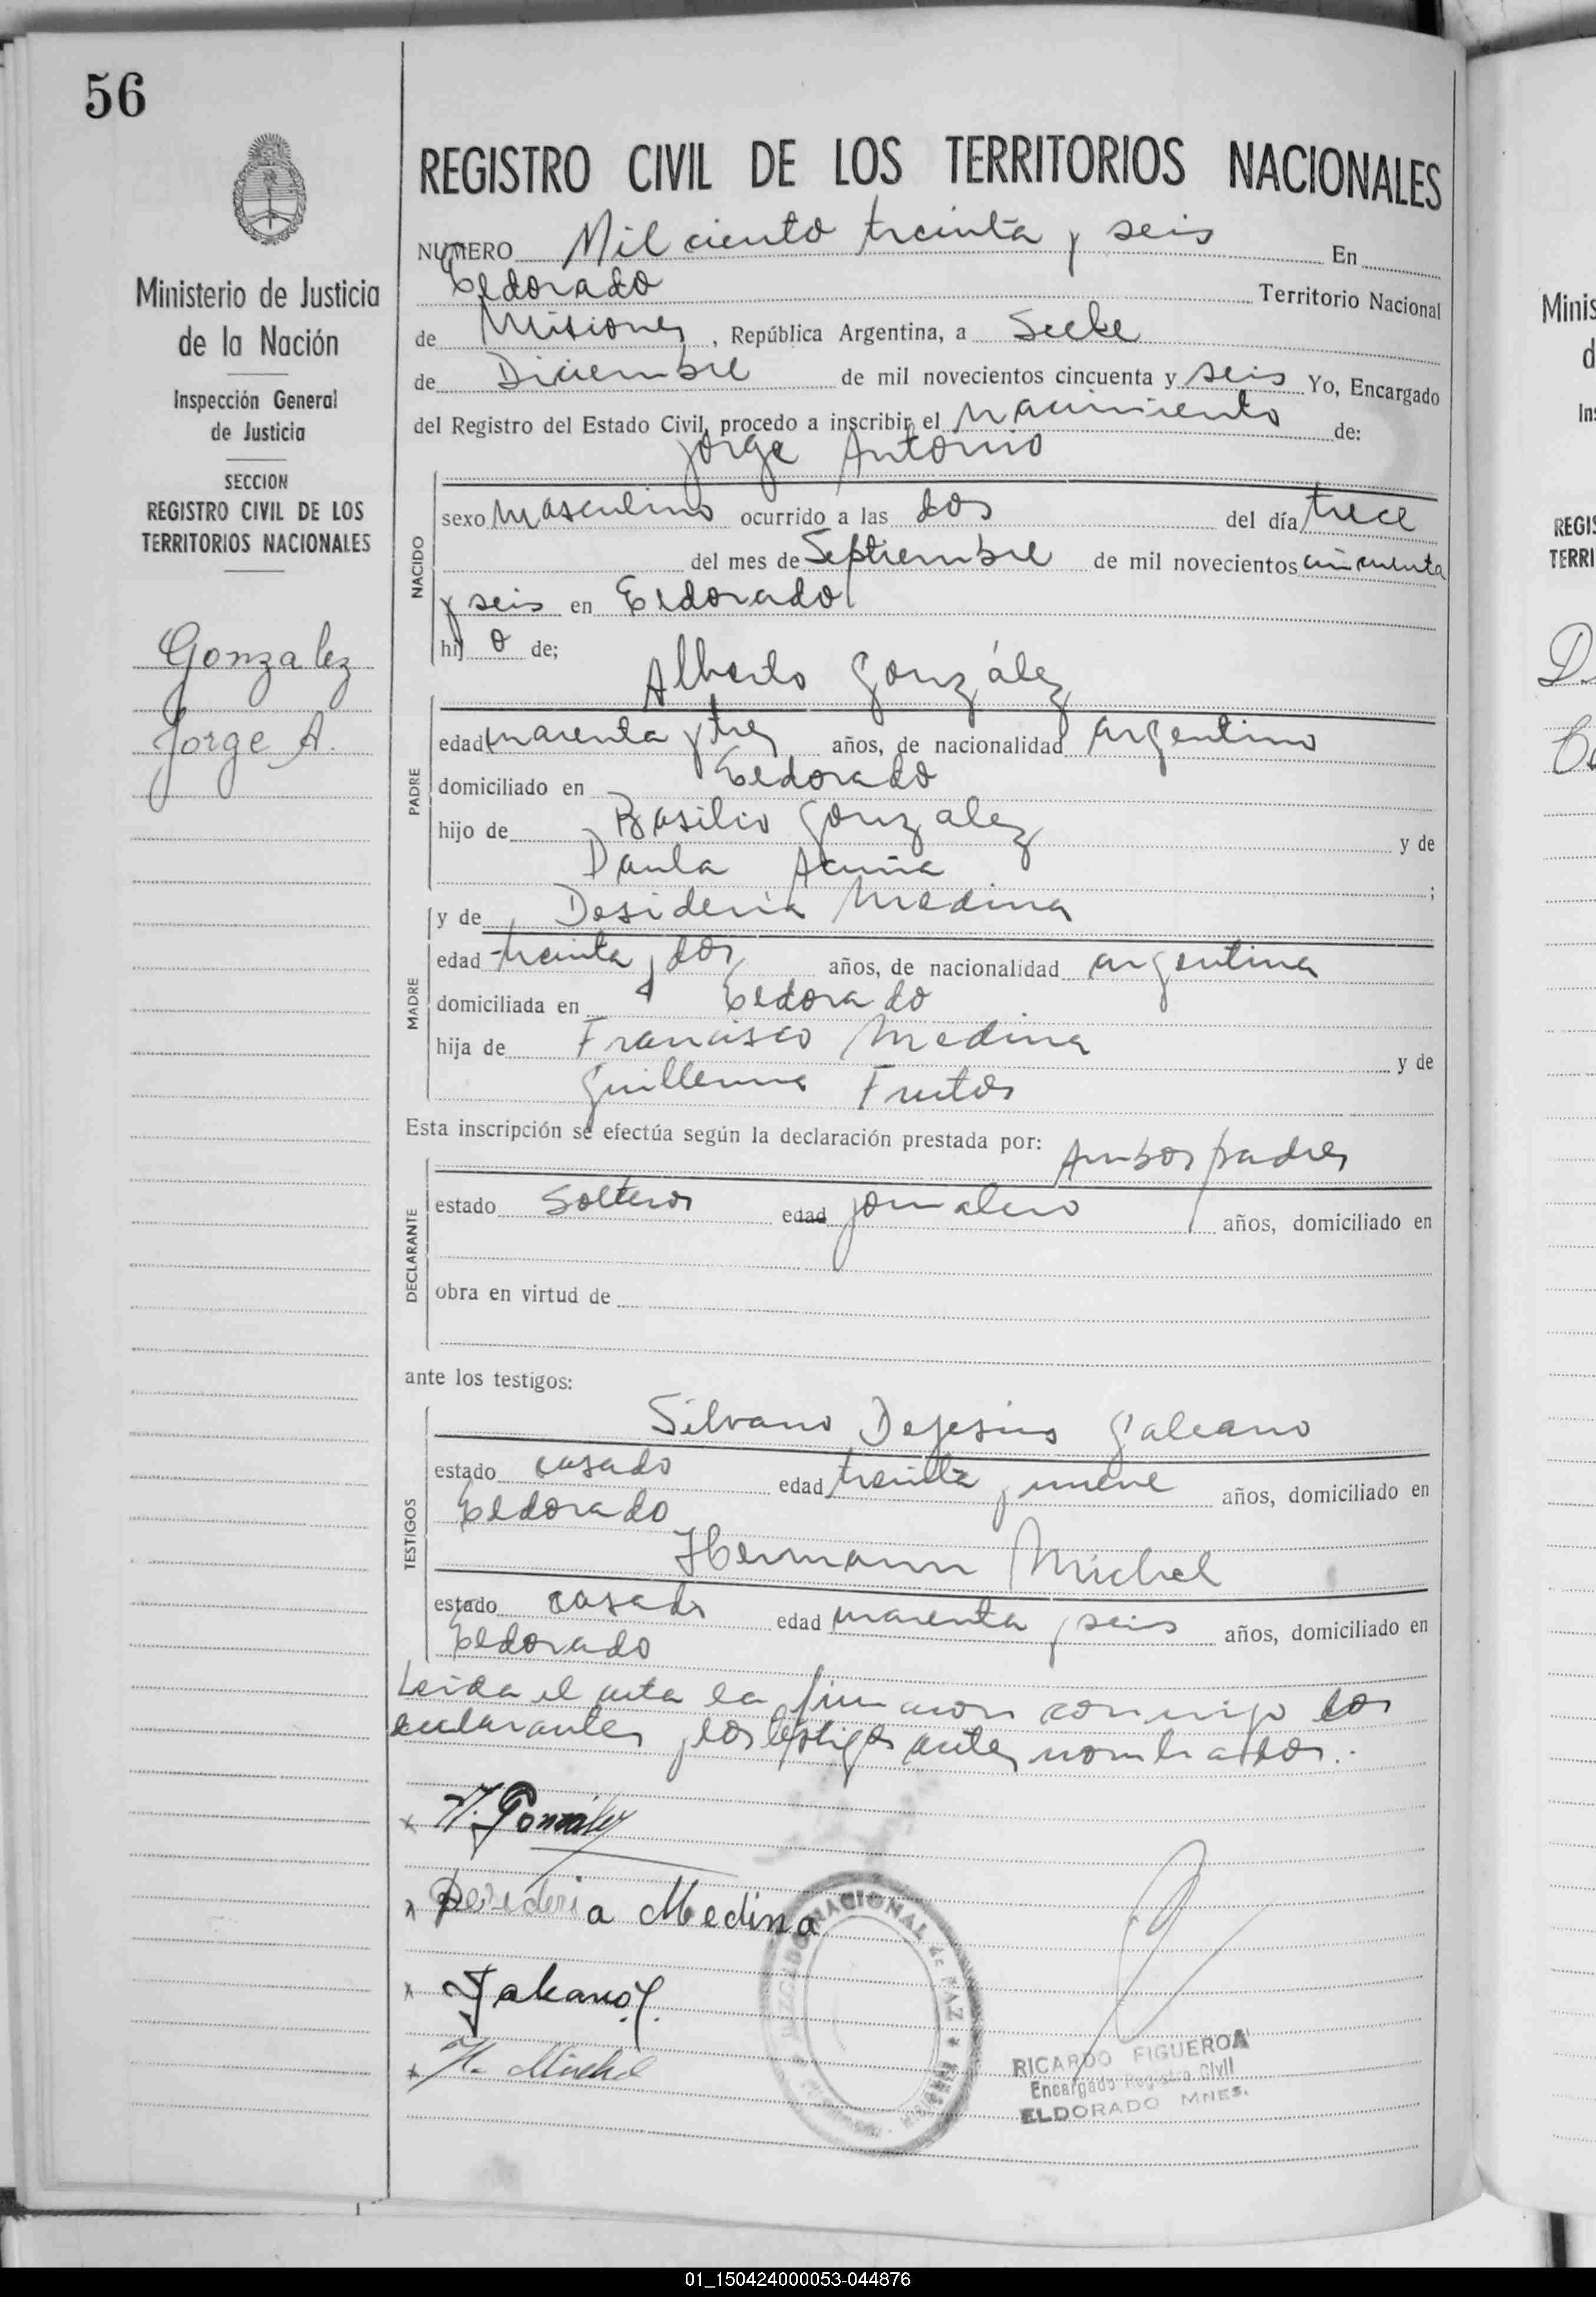 56
REGISTRO CIVIL DE LOS TERRITORIOS NACIONALES
Ministerio de Justicia
de la Nación
Inspección General
de Justicia
SECCION
REGISTRO CIVIL DE LOS
TERRITORIOS NACIONALES
Gonzalez
Jorge A.
NUMERO Mil ciento treinta y seis En
Eldorado Territorio Nacional
de Misiones, República Argentina, a Siete
de Diciembre de mil novecientos cincuenta y seis Yo, Encargado
del Registro del Estado Civil, procedo a inscribir el nacimiento de:
Jorge Antonio
NACIDO
sexo masculino ocurrido a las dos del día trece
del mes de Septiembre de mil novecientos cincuenta
y seis en Eldorado
hijo de;
Alberto González
PADRE
edad cuarenta y tres años, de nacionalidad argentino
domiciliado en Eldorado
hijo de Basilio Gonzalez y de
Paula Acuña ;
MADRE
y de Desideria Medina
edad treinta y dos años, de nacionalidad argentina
domiciliada en Eldorado
hija de Francisco Medina y de
Guillerma Frutos
Esta inscripción se efectúa según la declaración prestada por: Ambos padres
DECLARANTE
estado solteros edad jornalero años, domiciliado en
obra en virtud de
ante los testigos:
TESTIGOS
Silvano Dejesus Galeano
estado casado edad treinta y nueve años, domiciliado en
Eldorado
Hermann Michel
estado casado edad cuarenta y seis años, domiciliado en
Eldorado
Leida el acta la firmaron conmigo los
declarantes y los testigos antes nombrados.-
x A. González
x Desideria Medina
x Galeano
x H. Michel
JUZGADO NACIONAL de PAZ
RICARDO FIGUEROA
Encargado Registro Civil
ELDORADO MNES.
Minis
d
In
REGIS
TERRI
01_150424000053-044876